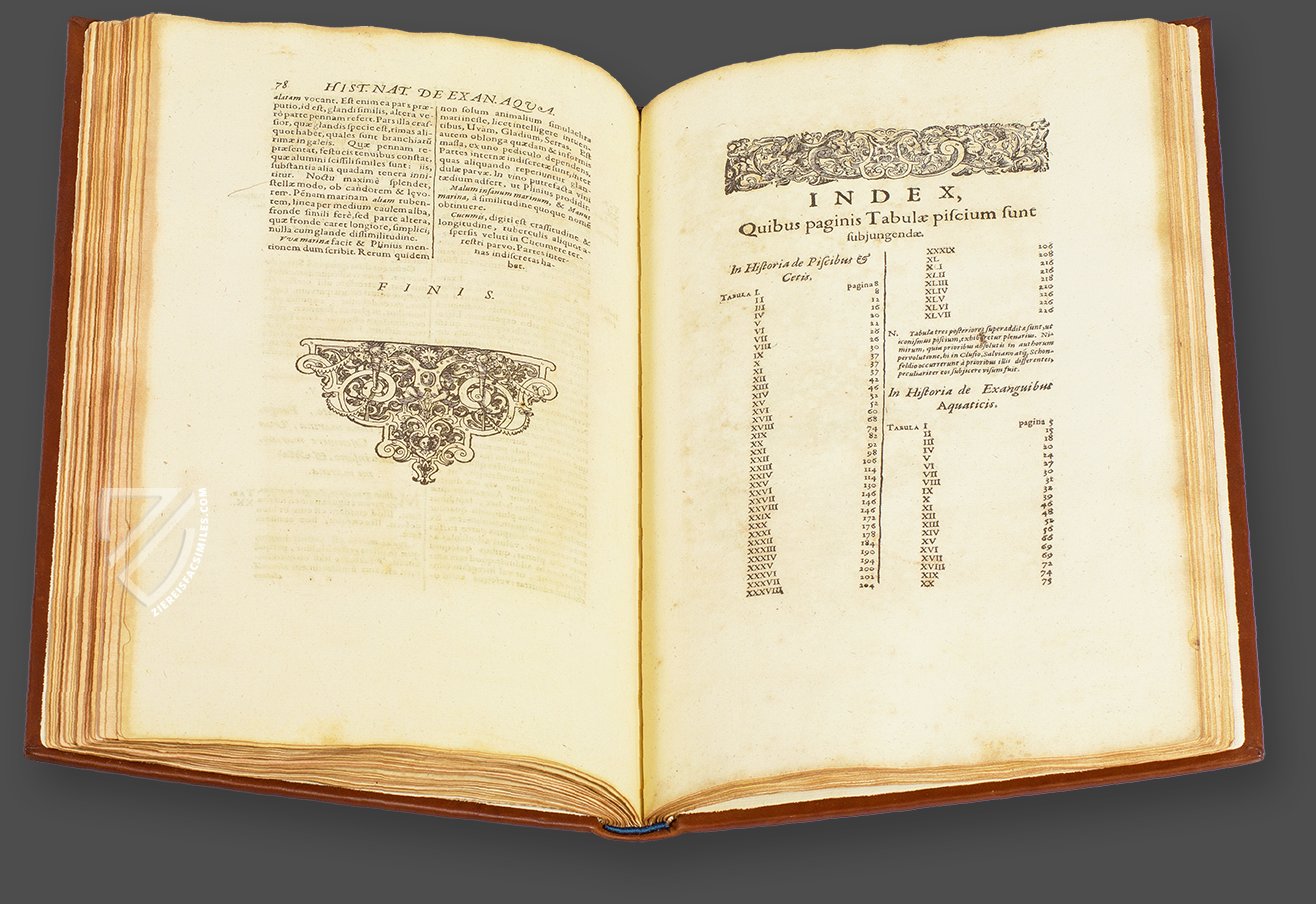 78 HIST. NAT. DE EXAN. AQUA.
alatam vocant. Est enim ea pars præ-
putio, id est, glandi similis, altera ve-
rò parte pennam refert. Pars illa cras-
sior, quæ glandis specie est, rimas ali-
quot habet, quales sunt branchiarũ
rimæ in galeis. Quæ pennam re-
præsentat, festucis tenuibus constat,
quæ alumini scissili similes sunt: iis,
substantia alia quædam tenera inni-
titur. Noctu maximè splendet,
stellæ modo, ob candorem & lęvo-
rem. Pēnam marinam aliam ruben-
tem, linea per medium caulem alba,
fronde simili ferè, sed parte altera,
quæ frondē caret longiore, simplici,
nulla cum glande dissimilitudine.
Vvæ marinæ facit & Plinius men-
tionem dum scribit. Rerum quidem
non solum animalium simulachra
mari inesse, licet intelligere intuen-
tibus, Uvam, Gladium, Serras. Est
autem oblonga quædam & informis
massa, ex uno pediculo dependens.
Partes internæ indiscretæ sunt, inter
quas aliquando reperiuntur glan-
dulæ parvæ. In vino putrefacta vini
tædium adfert, ut Plinius prodidit.
Malum insanum marinum, & Manus
marina, à similitudine quoque nomē
obtinuere.
Cucumis, digiti est crassitudine &
longitudine, tuberculis aliquot a-
spersis veluti in Cucumere ter-
restri parvo. Partes inter-
nas indiscretas ha-
bet.
FINIS.
INDEX,
Quibus paginis Tabulæ piscium sunt
subjungendæ.
In Historia de Piscibus &
Cetis.
TABULA I. pagina 8
II 8
III 12
IV 16
V 20
VI 22
VII 26
VIII 26
IX 30
X 37
XI 37
XII 37
XIII 42
XIV 46
XV 52
XVI 52
XVII 60
XVIII 68
XIX 74
XX 82
XXI 92
XXII 98
XXIII 106
XXIV 114
XXV 114
XXVI 130
XXVII 146
XXVIII 146
XXIX 146
XXX 172
XXXI 176
XXXII 178
XXXIII 184
XXXIV 190
XXXV 194
XXXVI 200
XXXVII 202
XXXVIII 204
XXXIX 206
XL 208
XLI 216
XLII 216
XLIII 218
XLIV 220
XLV 226
XLVI 226
XLVII 226
N. Tabulæ tres posteriores superadditæ sunt, ut
iconismus piscium, exhiberetur plenarius. Ni-
mirum, quia prioribus absolutis in authorum
pervolutione, hi in Clusio, Salviano atq; Schon-
feldio occurrerunt à prioribus illis differentes,
peculiariter eos subjicere visum fuit.
In Historia de Exanguibus
Aquaticis.
TABULA I pagina 5
II 15
III 18
IV 20
V 24
VI 27
VII 30
VIII 32
IX 32
X 39
XI 46
XII 48
XIII 52
XIV 56
XV 66
XVI 69
XVII 69
XVIII 72
XIX 74
XX 75
ZIEREISFACSIMILES.COM